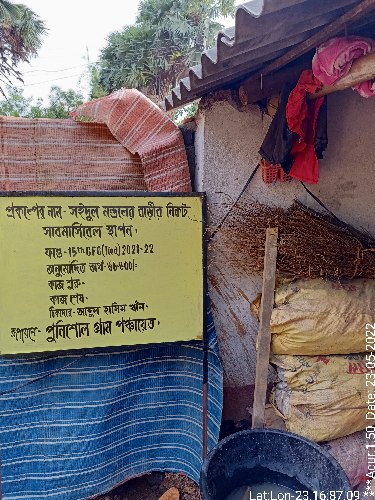 প্রকল্পের নাম - সহিদুল মন্ডলের বাড়ীর নিকট
সাবমার্সিবল স্থাপন,
ফান্ড - 15th CFC (tied) 2021-22
অনুমোদিত অর্থ -
কাজ শুরু -
কাজ শেষ -
ঠিকাদার - আব্দুল হাসিম খাঁন,
রূপায়নে - পুনিশোল গ্রাম পঞ্চায়েত,
Lat:Lon-23.16:87.09
***Acur:1.50, Date: 23-05-2022